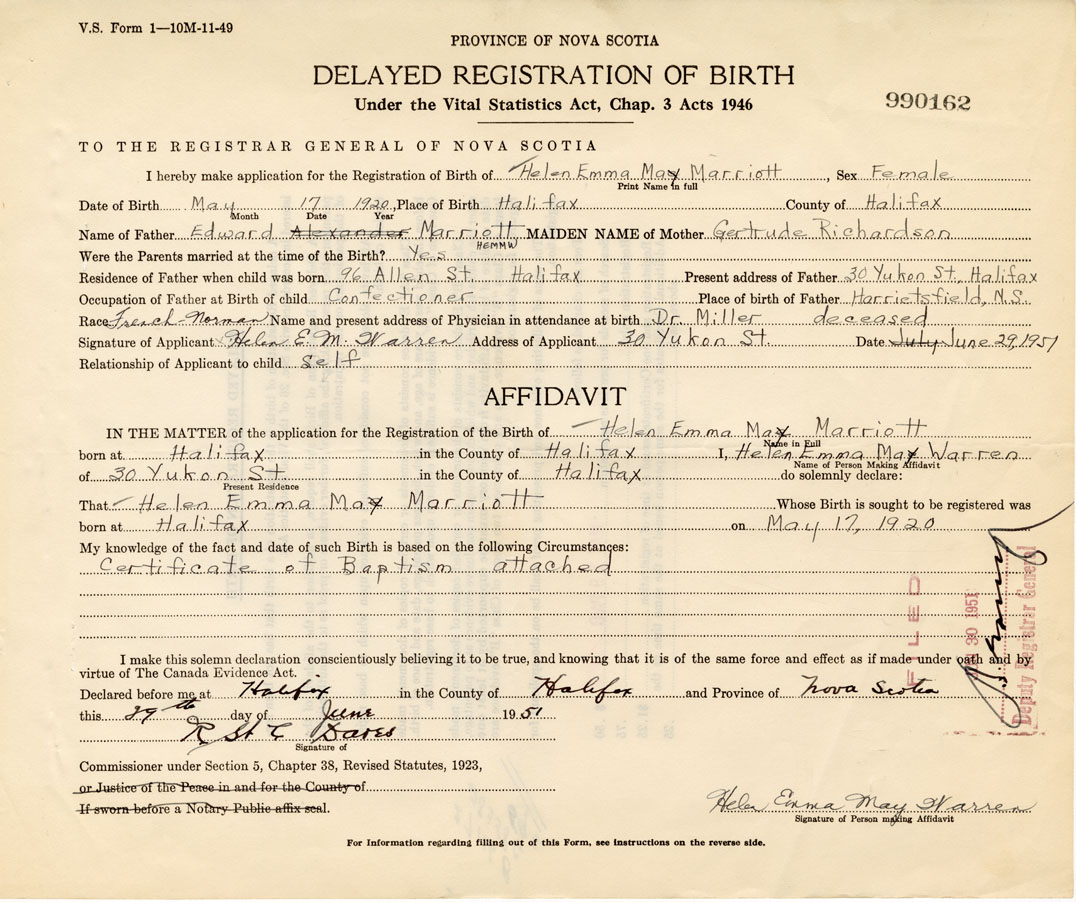 V.S. Form 1—10M-11-49
PROVINCE OF NOVA SCOTIA
DELAYED REGISTRATION OF BIRTH
Under the Vital Statistics Act, Chap. 3 Acts 1946
990162
TO THE REGISTRAR GENERAL OF NOVA SCOTIA
I hereby make application for the Registration of Birth of Helen Emma May Marriott, Sex Female
Print Name in full
Date of Birth May 17 1920, Place of Birth Halifax County of Halifax
Month Date Year
Name of Father Edward Alexander Marriott, MAIDEN NAME of Mother Gertrude Richardson
HEMMW
Were the Parents married at the time of the Birth? Yes
Residence of Father when child was born 96 Allen St. Halifax Present address of Father 30 Yukon St., Halifax
Occupation of Father at Birth of child Confectioner Place of birth of Father Harrietsfield, N.S.
Race French-Norman Name and present address of Physician in attendance at birth Dr. Miller deceased
Signature of Applicant Helen E. M. Warren Address of Applicant 30 Yukon St Date July June 29, 1951
Relationship of Applicant to child self
AFFIDAVIT
IN THE MATTER of the application for the Registration of the Birth of Helen Emma May Marriott
Name in Full
born at Halifax in the County of Halifax I, Helen Emma May Warren
Name of Person Making Affidavit
of 30 Yukon St. in the County of Halifax do solemnly declare:
Present Residence
That Helen Emma May Marriott Whose Birth is sought to be registered was
born at Halifax on May 17, 1920
My knowledge of the fact and date of such Birth is based on the following Circumstances:
Certificate of Baptism attached
I make this solemn declaration conscientiously believing it to be true, and knowing that it is of the same force and effect as if made under oath and by
virtue of The Canada Evidence Act.
Declared before me at Halifax in the County of Halifax and Province of Nova Scotia
this 29th day of June 1951
R St C Davis
Signature of
Commissioner under Section 5, Chapter 38, Revised Statutes, 1923,
or Justice of the Peace in and for the County of
If sworn before a Notary Public affix seal.
Helen Emma May Warren
Signature of Person making Affidavit
For Information regarding filling out of this Form, see instructions on the reverse side.
FILED
30 1951
Deputy Registrar General